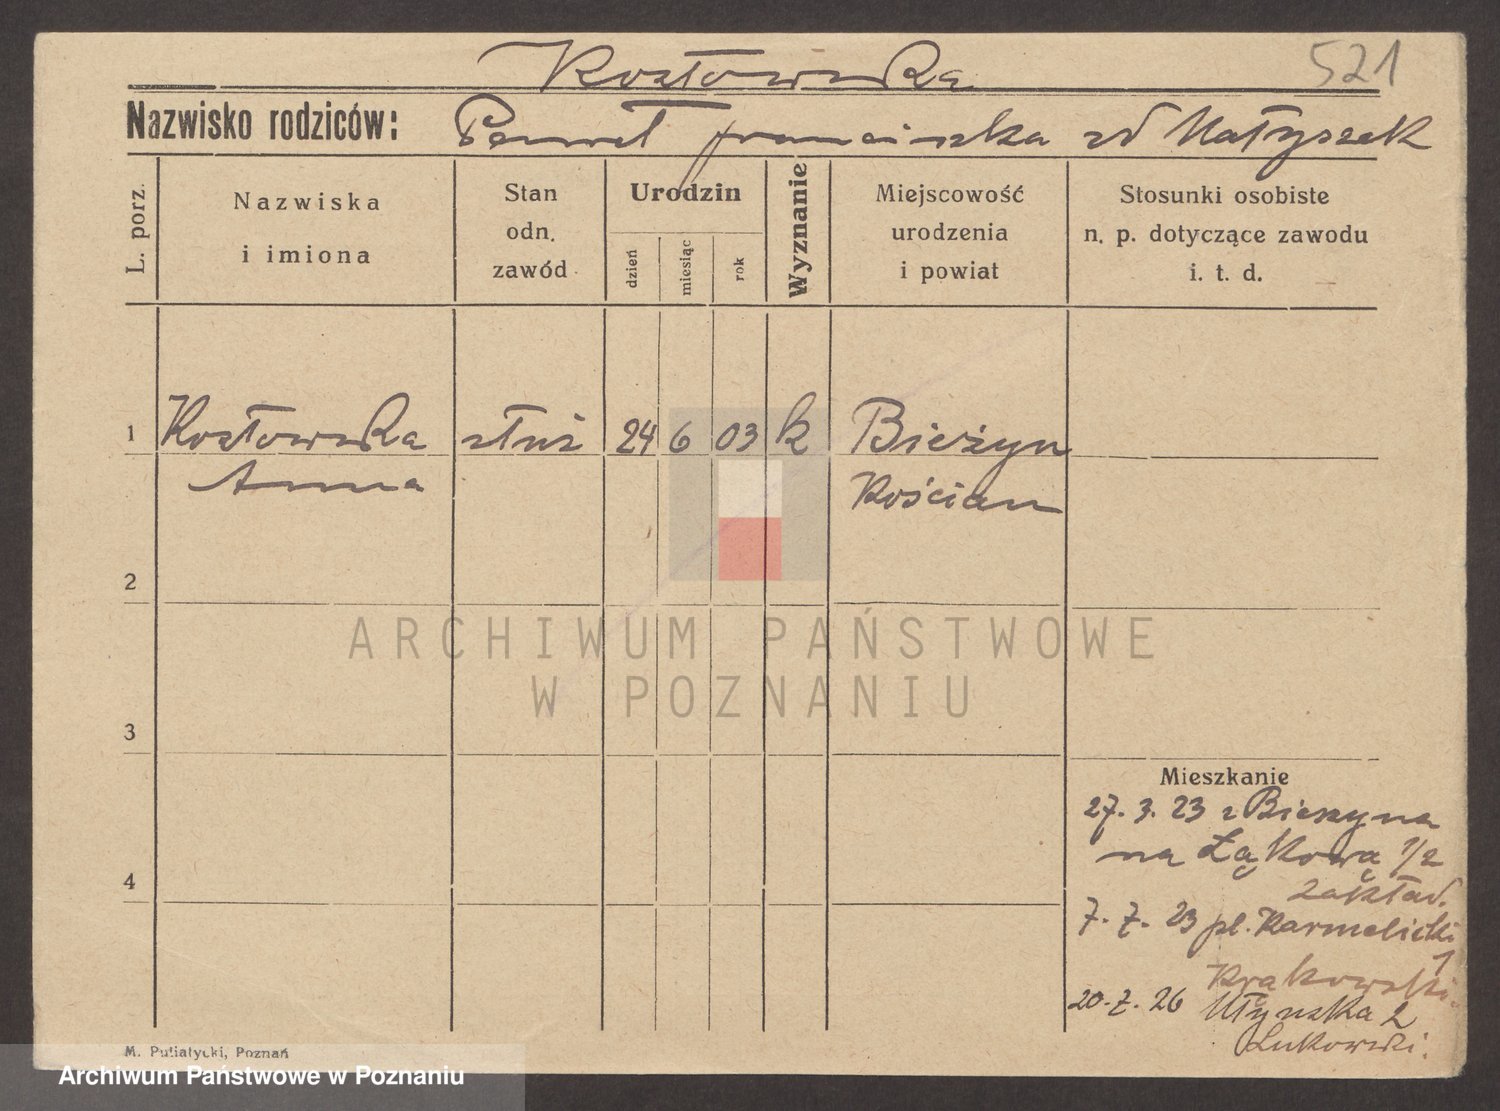 Kozłowska
521
Nazwisko rodziców: Paweł Franciszka zd Matyszek
L. porz.
Nazwiska
i imiona
Stan
odn.
zawód
Urodzin
dzień
miesiąc
rok
Wyznanie
Miejscowość
urodzenia
i powiat
Stosunki osobiste
n. p. dotyczące zawodu
i. t. d.
1 Kozłowska służ 24 6 03 k Bieżyn
Anna Kościan
2
ARCHIWUM PAŃSTWOWE
W POZNANIU
3
Mieszkanie
27. 3. 23 z Bieżyna
na Łąkową 1/2
zakład.
4
7. 7. 23 pl. Karmelicki
1
Krakowski.
20. 7. 26 Młyńska 2
Łukowski.
M. Putiatycki, Poznań
Archiwum Państwowe w Poznaniu